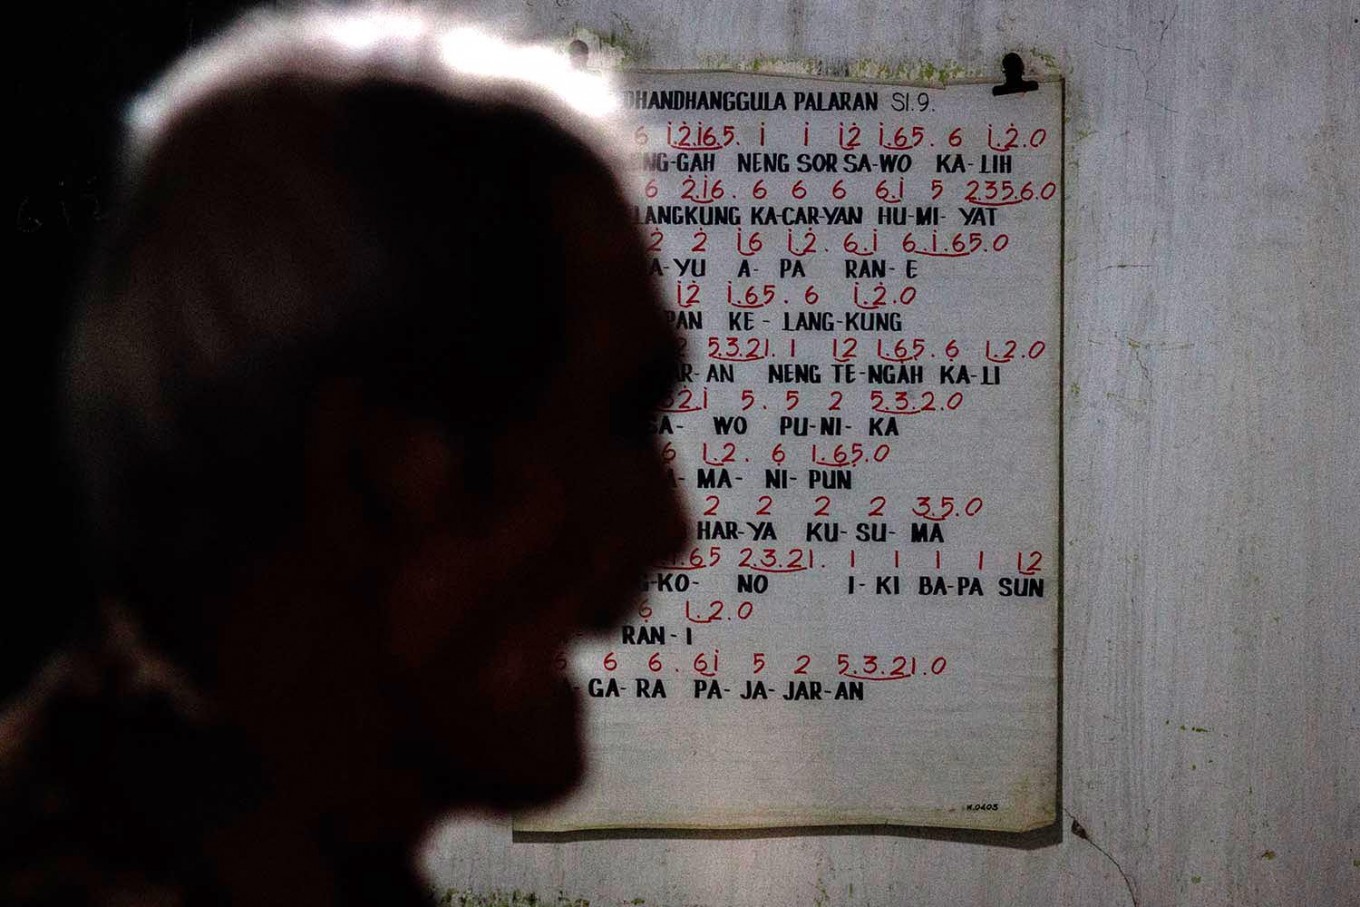 DHANDHANGGULA PALARAN Sl.9.
6 i.2.i65. i i i2 i.65. 6 i.2.0
NG-GAH NENG SOR SA-WO KA-LIH
6 2.i6. 6 6 6 6.i 5 235.6.0
LANGKUNG KA-CAR-YAN HU-MI-YAT
2 2 i6 i.2. 6.i 6.i.65.0
A-YU A-PA RAN-E
i2 i.65. 6 i.2.0
PAN KE-LANG-KUNG
2 5.3.21. 1 12 1.65. 6 1.2.0
R-AN NENG TE-NGAH KA-LI
32.i 5. 5 2 5.3.2.0
SA-WO PU-NI-KA
6 1.2. 6 1.65.0
A-MA-NI-PUN
2 2 2 2 3.5.0
HAR-YA KU-SU-MA
1.65 2.3.21. 1 1 1 1 12
G-KO-NO I-KI BA-PA SUN
6 1.2.0
RAN-I
6 6 6. 6i 5 2 5.3.21.0
A-GA-RA PA-JA-JAR-AN